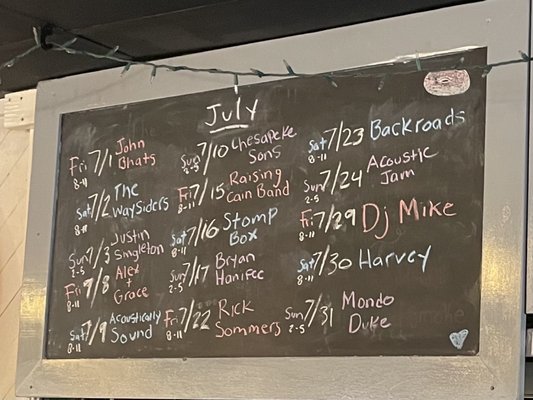 July
Fri 7/1 John
8-11 Bhats
Sat 7/2 The
8-11 Waysiders
Sun 7/3 Justin
2-5 Singleton
Fri 7/8 Alex
8-11 + Grace
Sat 7/9 Acoustically
8-11 Sound
Sun 7/10 Chesapeke
2-5 Sons
Fri 7/15 Raising
8-11 Cain Band
Sat 7/16 Stomp
8-11 Box
Sun 7/17 Bryan
2-5 Hanifee
Fri 7/22 Rick
8-11 Sommers
Sat 7/23 Backroads
8-11
Sun 7/24 Acoustic
2-5 Jam
Fri 7/29 Dj Mike
8-11
Sat 7/30 Harvey
8-11
Sun 7/31 Mondo
2-5 Duke